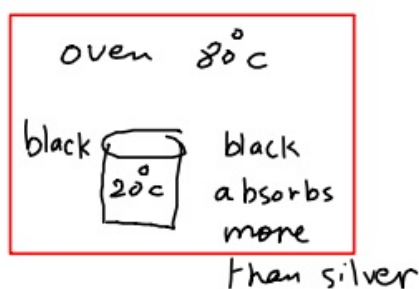 oven 80°C
black
20°C
black
absorbs
more
than silver